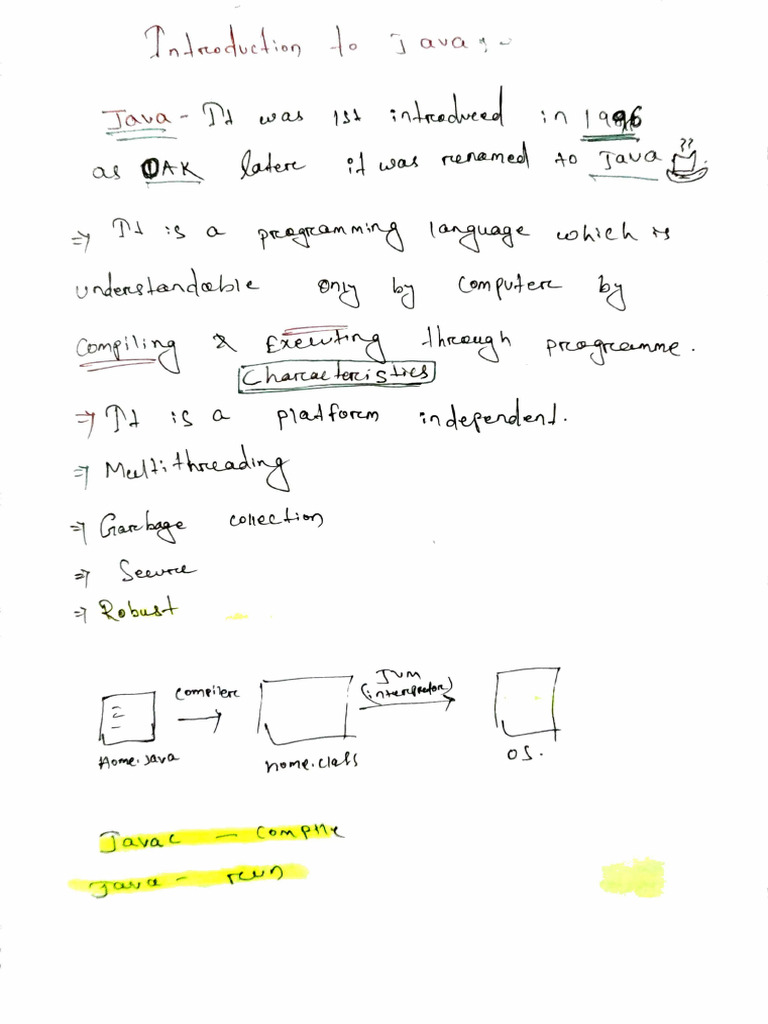 Introduction to Java :-
Java - It was 1st introduced in 1996
as OAK later it was renamed to Java
=> It is a programming language which is
understandable only by computer by
Compiling & Executing through programme.
Characteristics
=> It is a platform independent.
=> Multithreading
=> Garbage collection
=> Secure
=> Robust
Compiler
JVM
(interpretor)
Home.java
home.class
OS.
Javac - Compile
Java - run